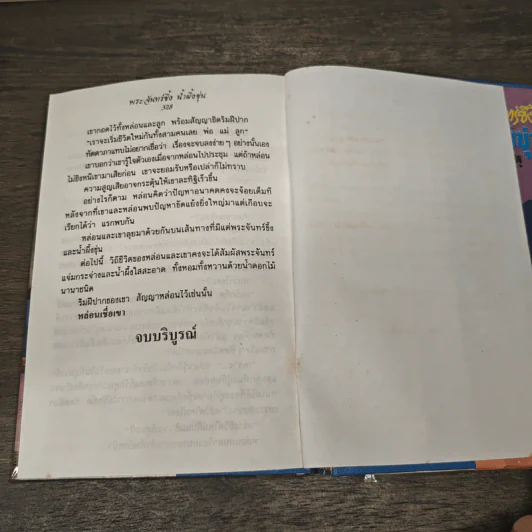 พระจันทร์ขึ้ง น้ำผึ้งขุ่น
328
เขากอดไว้ทั้งหล่อนและลูก พร้อมสัญญาชิดริมฝีปาก
"เราจะเริ่มชีวิตใหม่กันทั้งสามคนเลย พ่อ แม่ ลูก"
ทัตดาภาแทบไม่อยากเชื่อว่า เรื่องจะจบลงง่ายๆ อย่างนั้นเอง
เขาบอกว่าเขารู้ใจตัวเองเมื่อจากหล่อนไปประชุม แต่ถ้าหล่อน
ไม่ชิงหนีเขามาเสียก่อน เขาจะยอมรับหรือเปล่าก็ไม่ทราบ
ความสูญเสียอาจกระตุ้นให้เขาละทิฐิเร็วขึ้น
อย่างไรก็ตาม หล่อนคิดว่าปัญหาอนาคตคงจะจ้อยเต็มที
หลังจากที่เขาและหล่อนพบปัญหาขัดแย้งยิ่งใหญ่มาแต่เกือบจะ
เรียกได้ว่า แรกพบกัน
หล่อนและเขาลุยมาด้วยกันบนเส้นทางที่มีแต่พระจันทร์ขึ้ง
และน้ำผึ้งขุ่น
ต่อไปนี้ วิถีชีวิตของหล่อนและเขาคงจะได้สัมผัสพระจันทร์
แจ่มกระจ่างและน้ำผึ้งใสสะอาด ทั้งหอมทั้งหวานด้วยน้ำดอกไม้
นานาชนิด
ริมฝีปากของเขา สัญญาหล่อนไว้เช่นนั้น
หล่อนเชื่อเขา
จบบริบูรณ์